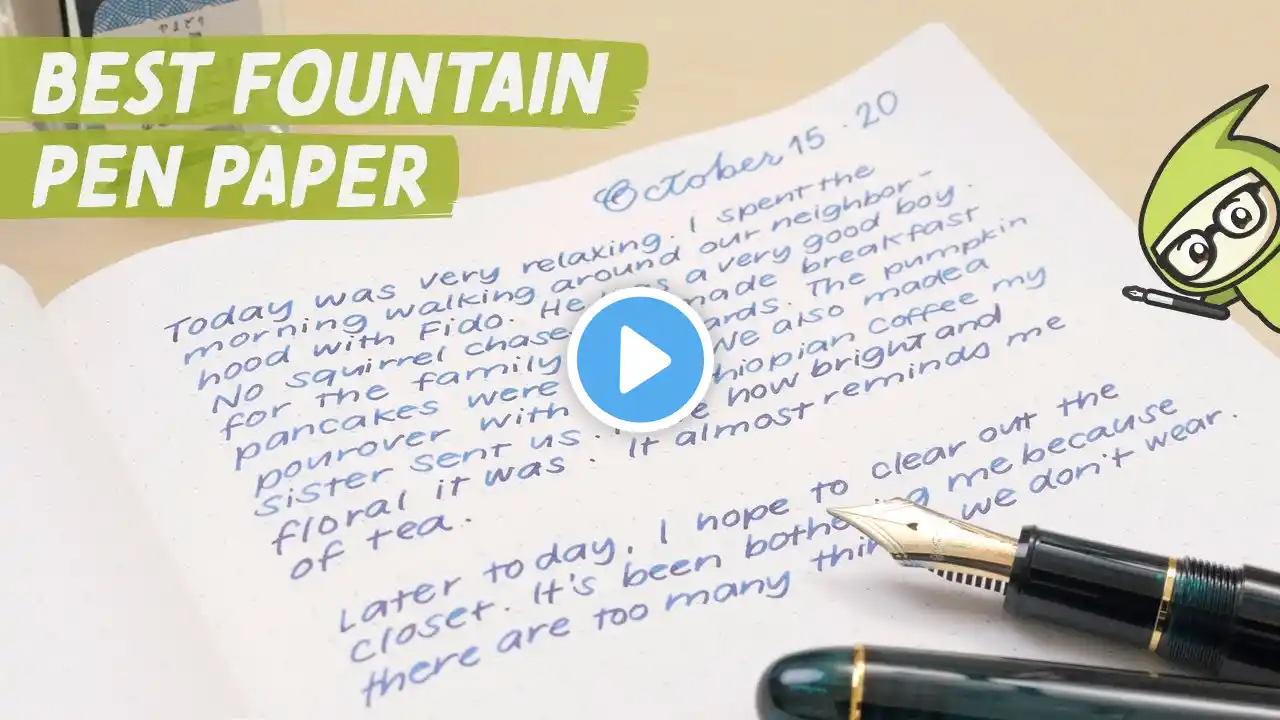 BEST FOUNTAIN
PEN PAPER
October 15 . 20
Today was very relaxing. I spent the
morning walking around our neighbor-
hood with Fido. He was a very good boy.
No squirrel made breakfast
for the family The pumpkin
pancakes were We also made a
pourover with coffee my
sister sent us. how bright and
floral it was. It almost reminds me
of tea.
Later today, I hope to clear out the
closet. It's been bothering me because
there are too many we don't wear.